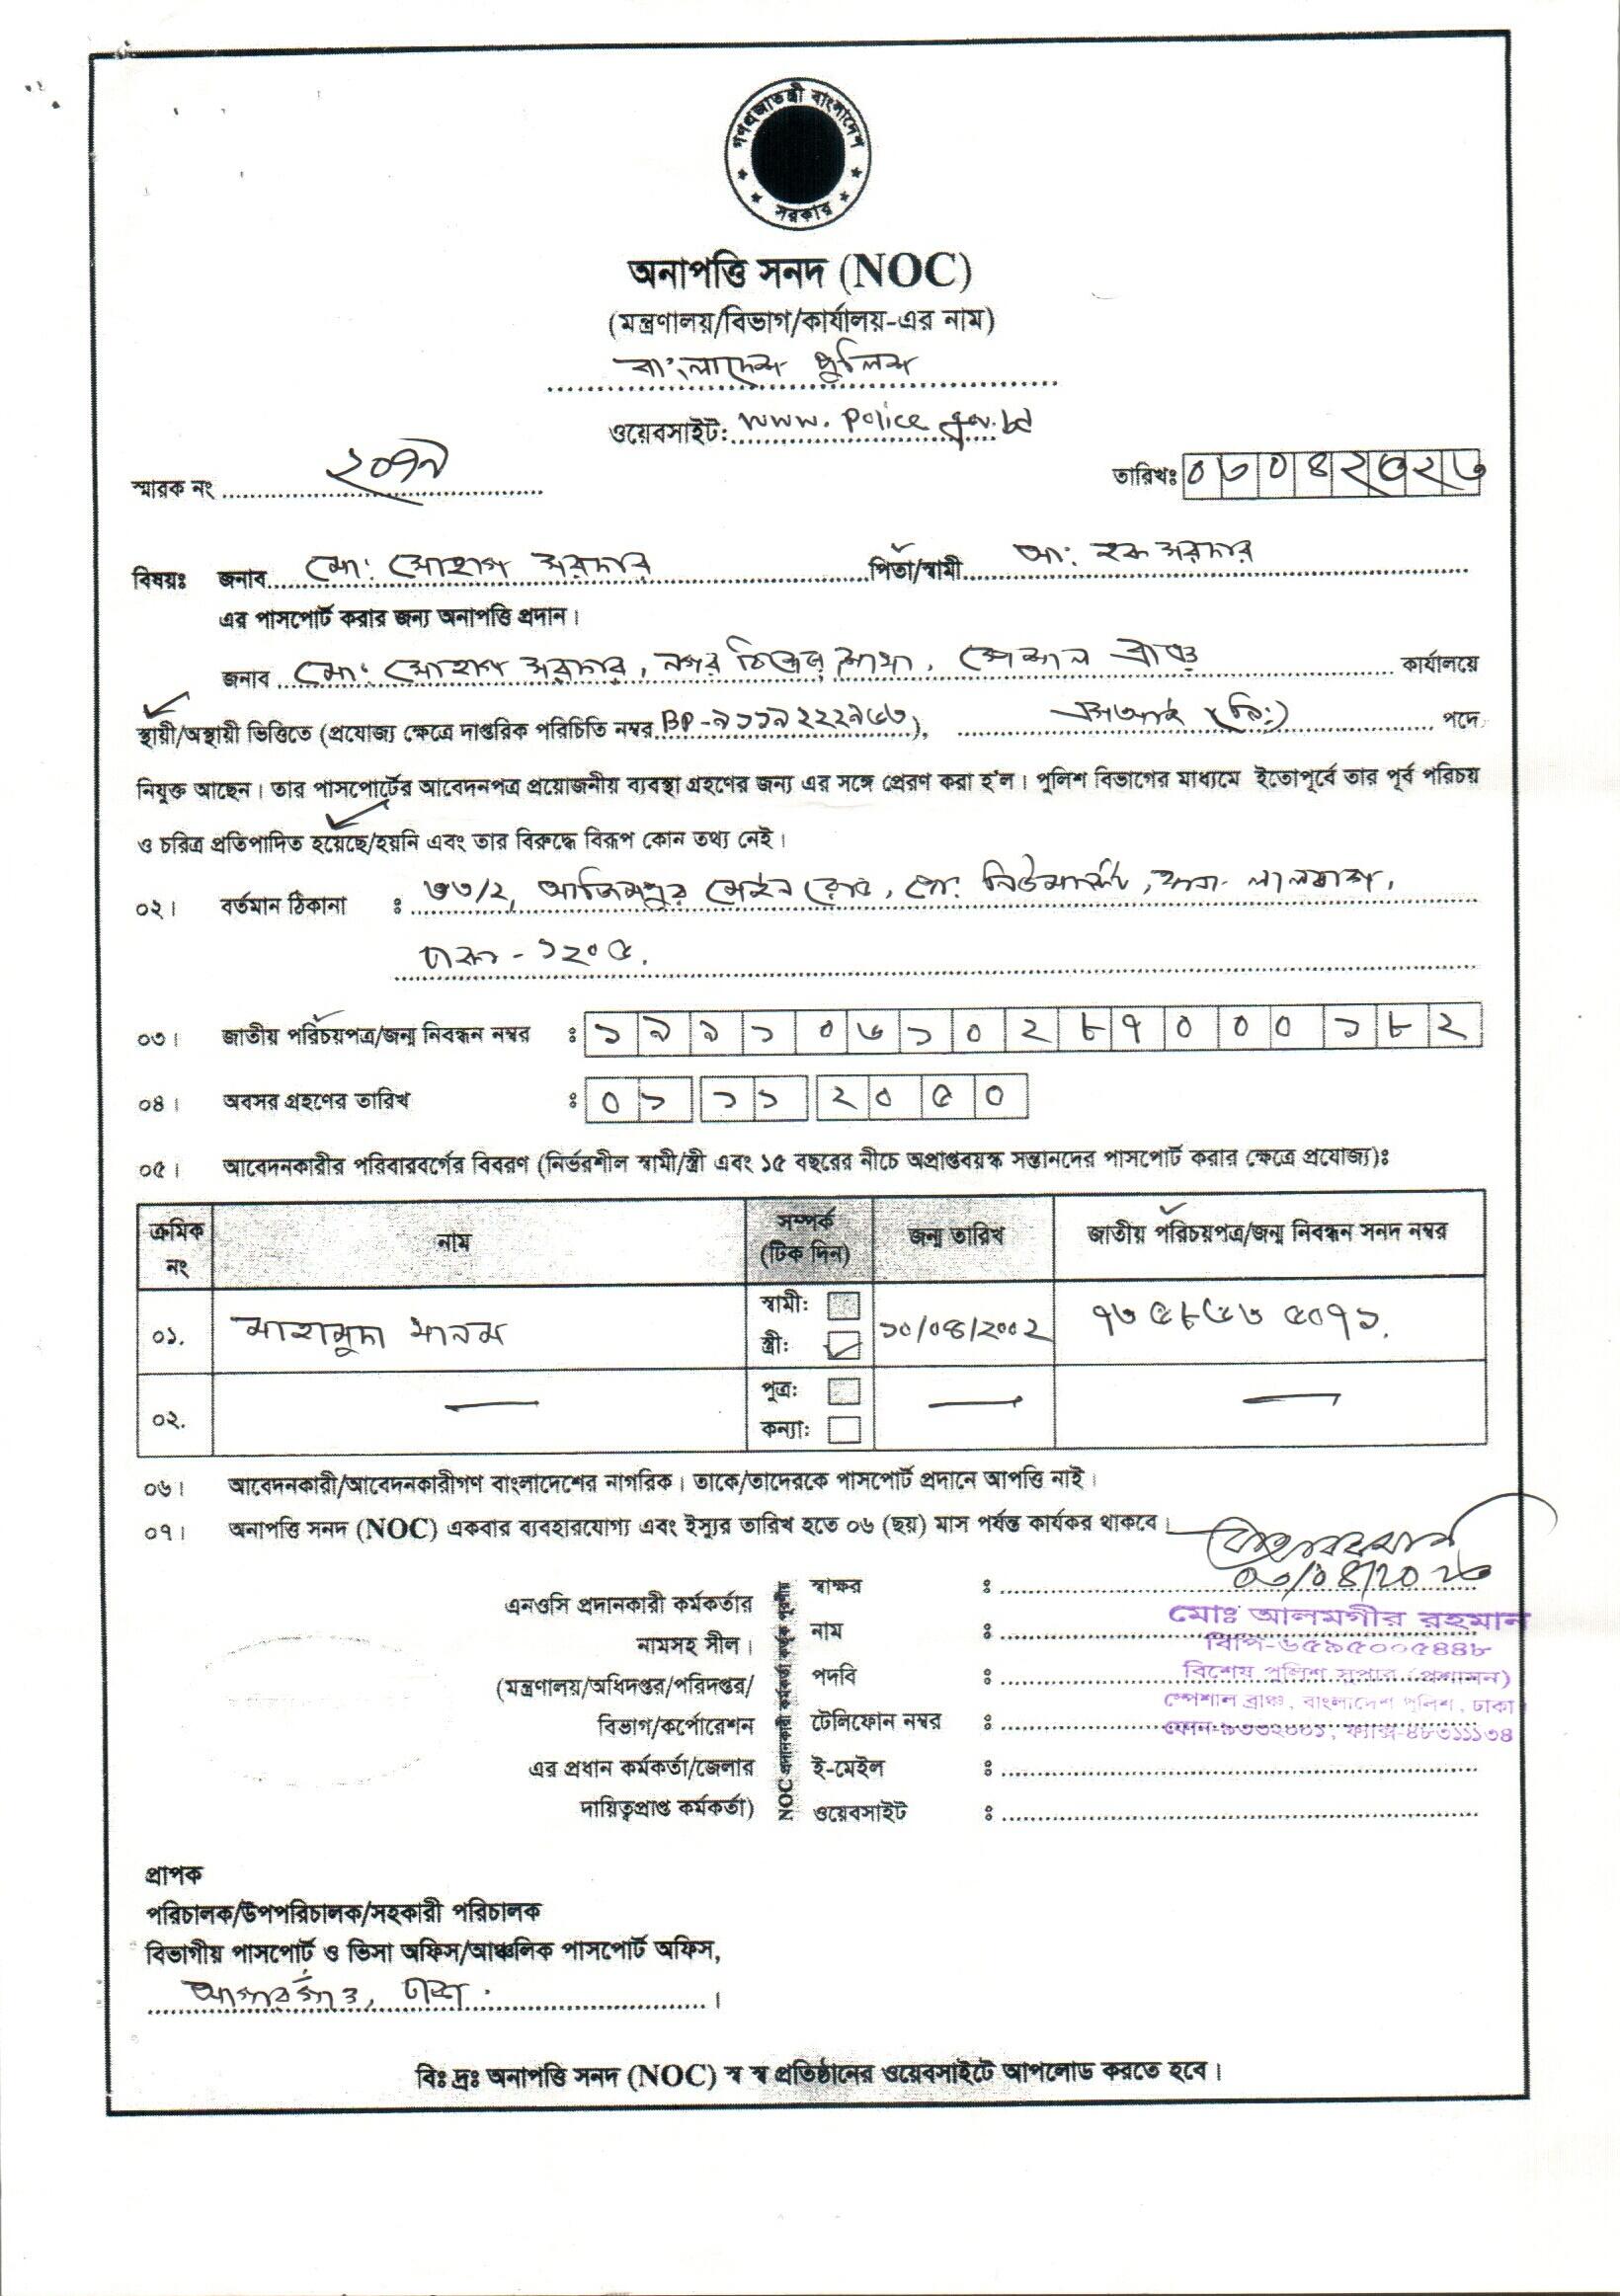 গণপ্রজাতন্ত্রী বাংলাদেশ
সরকার
অনাপত্তি সনদ (NOC)
(মন্ত্রণালয়/বিভাগ/কার্যালয়-এর নাম)
বাংলাদেশ পুলিশ
ওয়েবসাইট: www.police.gov.bd
স্মারক নং
তারিখঃ
বিষয়ঃ জনাব মো: সোহাগ সরদার পিতা/স্বামী আ: হক সরদার
এর পাসপোর্ট করার জন্য অনাপত্তি প্রদান।
জনাব মো: সোহাগ সরদার, নগর শাখা, স্পেশাল ব্রাঞ্চ কার্যালয়ে
স্থায়ী/অস্থায়ী ভিত্তিতে (প্রযোজ্য ক্ষেত্রে দাপ্তরিক পরিচিতি নম্বর BP-), এএসআই (নি:) পদে
নিযুক্ত আছেন। তার পাসপোর্টের আবেদনপত্র প্রয়োজনীয় ব্যবস্থা গ্রহণের জন্য এর সঙ্গে প্রেরণ করা হ'ল। পুলিশ বিভাগের মাধ্যমে ইতোপূর্বে তার পূর্ব পরিচয়
ও চরিত্র প্রতিপাদিত হয়েছে/হয়নি এবং তার বিরুদ্ধে বিরূপ কোন তথ্য নেই।
০২। বর্তমান ঠিকানা : আজিমপুর মেইন রোড, পো: নিউমার্কেট, থানা- লালবাগ,
ঢাকা - ১২০৫.
০৩। জাতীয় পরিচয়পত্র/জন্ম নিবন্ধন নম্বর : ১৯৯১০৬১০২৮৭০০০১৮২
০৪। অবসর গ্রহণের তারিখ : ০১ ১১ ২০৫০
০৫। আবেদনকারীর পরিবারবর্গের বিবরণ (নির্ভরশীল স্বামী/স্ত্রী এবং ১৫ বছরের নীচে অপ্রাপ্তবয়স্ক সন্তানদের পাসপোর্ট করার ক্ষেত্রে প্রযোজ্য)ঃ
ক্রমিক নং নাম সম্পর্ক (টিক দিন) জন্ম তারিখ জাতীয় পরিচয়পত্র/জন্ম নিবন্ধন সনদ নম্বর
০১. মাহামুদা খানম স্বামী: স্ত্রী: ১০/০৪/২০০২
০২. — পুত্র: কন্যা: — —
০৬। আবেদনকারী/আবেদনকারীগণ বাংলাদেশের নাগরিক। তাকে/তাদেরকে পাসপোর্ট প্রদানে আপত্তি নাই।
০৭। অনাপত্তি সনদ (NOC) একবার ব্যবহারযোগ্য এবং ইস্যুর তারিখ হতে ০৬ (ছয়) মাস পর্যন্ত কার্যকর থাকবে।
এনওসি প্রদানকারী কর্মকর্তার
নামসহ সীল।
(মন্ত্রণালয়/অধিদপ্তর/পরিদপ্তর/
বিভাগ/কর্পোরেশন
এর প্রধান কর্মকর্তা/জেলার
দায়িত্বপ্রাপ্ত কর্মকর্তা)
NOC প্রদানকারী কর্মকর্তা কর্তৃক পূরণীয়
স্বাক্ষর :
নাম : মোঃ আলমগীর রহমান
বিপি-৬৫৯৫০০৫৪৪৮
পদবি : বিশেষ পুলিশ সুপার (প্রশাসন)
স্পেশাল ব্রাঞ্চ, বাংলাদেশ পুলিশ, ঢাকা
টেলিফোন নম্বর :
ই-মেইল :
ওয়েবসাইট :
প্রাপক
পরিচালক/উপপরিচালক/সহকারী পরিচালক
বিভাগীয় পাসপোর্ট ও ভিসা অফিস/আঞ্চলিক পাসপোর্ট অফিস,
আগারগাঁও, ঢাকা।
বিঃ দ্রঃ অনাপত্তি সনদ (NOC) স্ব স্ব প্রতিষ্ঠানের ওয়েবসাইটে আপলোড করতে হবে।